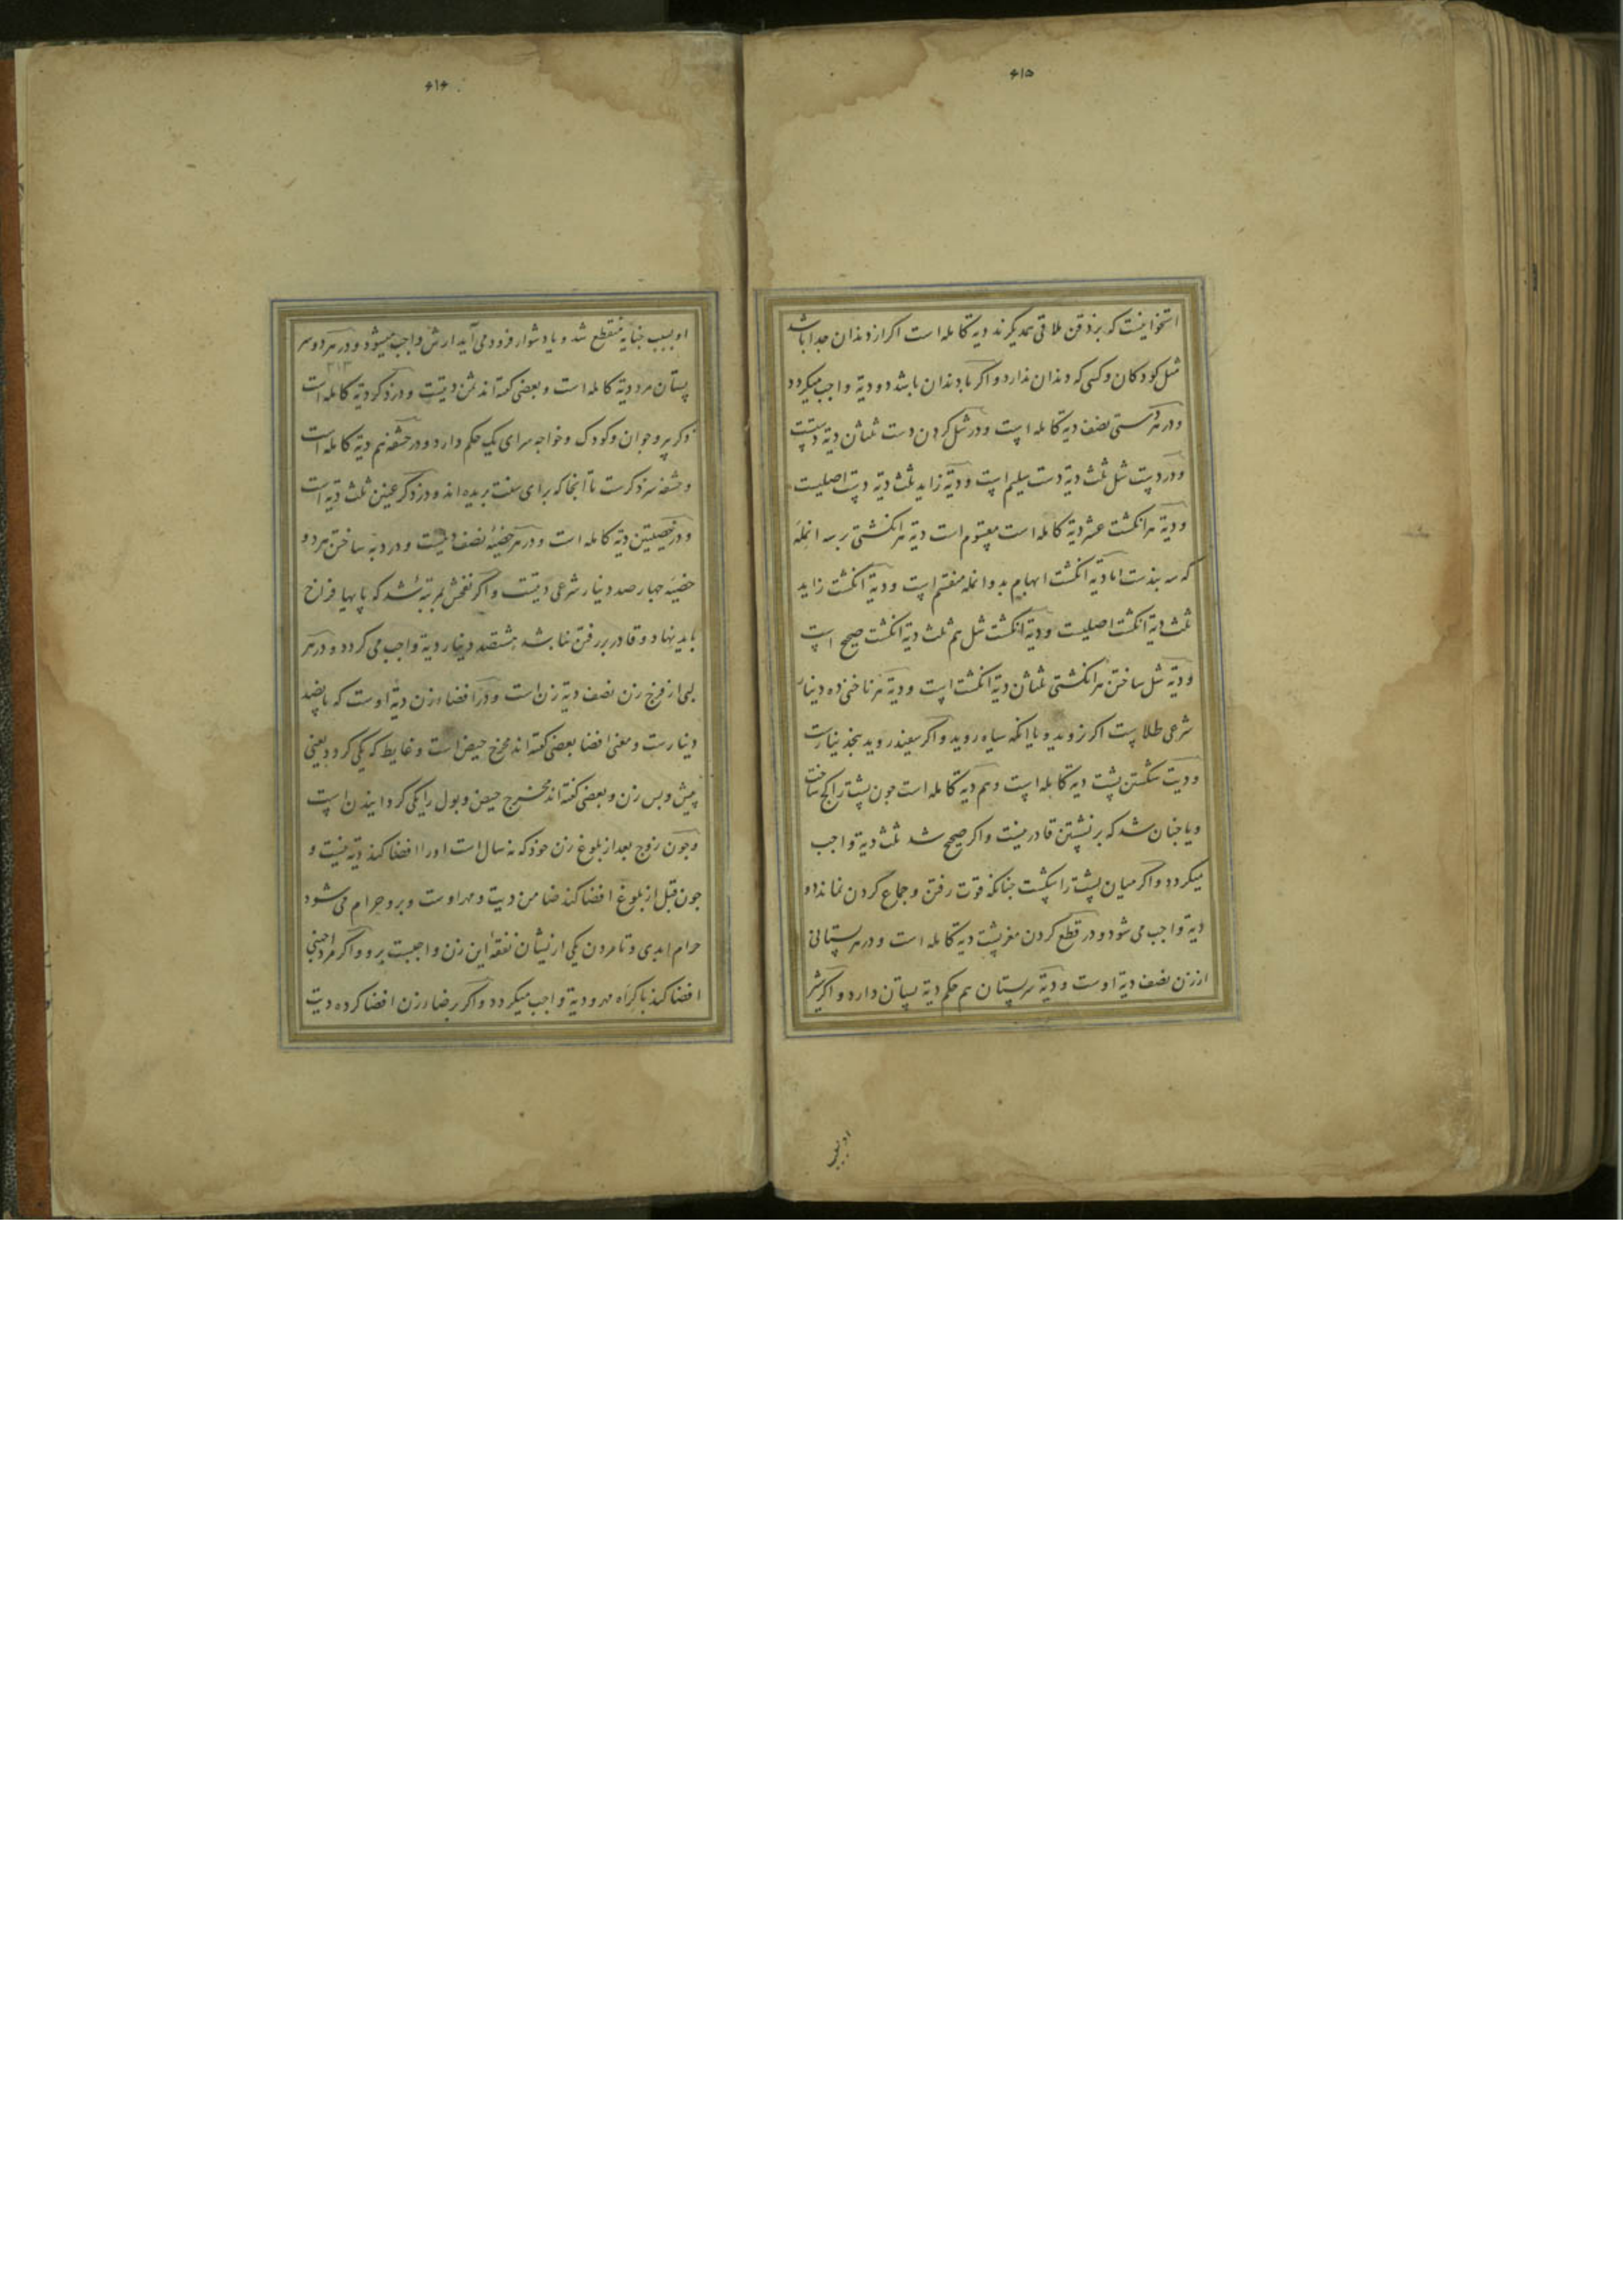 ۶۱۵
استخوانیست که بر ذقن ملاقی همدیکرند دیة کامله است اکر از دندان جدا باشد
مثل کودکان و کسی که دندان ندارد و اکر با دندان باشد دو دیة واجب میکردد
و در هر دستی نصف دیة کامله است و در شل کردن دست ثلثان دیة دستست
و در دست شل ثلث دیة دست سلیم است و دیة زاید ثلث دیة دست اصلیست
و دیة هر انکشت عشر دیة کامله است مقسوم است دیة هر انکشتی بر سه انمله
که سه بندست اما دیة انکشت ابهام بدو انمله منقسم است و دیة انکشت زاید
ثلث دیة انکشت اصلیست و دیة انکشت شل هم ثلث دیة انکشت صحیح است
و دیة شل ساختن هر انکشتی ثلثان دیة انکشت است و دیة هر ناخنی ده دینار
شرعی طلا ست اکر نروید و یا انکه سیاه روید و اکر سفید روید پنج دینارست
و دیت شکستن پشت دیة کامله است و هم دیة کامله است چون پشت را کج ساخت
و یا چنان شد که بر نشستن قادر نیست و اکر صحیح شد ثلث دیة واجب
میکردد و اکر میان پشت را شکست چنانکه قوت رفتن و جماع کردن نماند دو
دیة واجب می شود و در قطع کردن مغز پشت دیة کامله است و در هر پستانی
از زن نصف دیة اوست و دیة سر پستان هم حکم دیة پستان دارد و اکر شیر
او بسبب
۶۱۶
او بسبب جنایة منقطع شد و یا دشوار فرود می آید ارش واجب میشود و در هر دو سر
۳۱۳
پستان مرد دیة کامله است و بعضی کفته اند ثمن دیتست و در ذکر دیة کامله است
ذکر پیر و جوان و کودک و خواجه سرای یک حکم دارد و در حشفه هم دیة کامله است
و حشفه سر ذکرست تا آنجا که برای سنت بریده اند و در ذکر عنین ثلث دیة است
و در خصیتین دیة کامله است و در هر خصیة نصف دیت و در دبه ساختن هر دو
خصیة چهار صد دینار شرعی دیتست و اکر نفخش بمرتبة شد که پایها فراخ
باید نهاد و قادر بر رفتن نباشد هشتصد دینار دیة واجب می کردد و در هر
لبی از فرج زن نصف دیة زن است و در افضاء زن دیة اوست که پانصد
دینارست و معنی افضا بعضی کفته اند مخرج حیض است و غایط که یکی کردد یعنی
پیش و پس زن و بعضی کفته اند مخرج حیض و بول را یکی کردانیدن است
و چون زوج بعد از بلوغ زن خود که نه سال است او را افضا کند دیة نیست و
چون قبل از بلوغ افضا کند ضامن دیت و مهر اوست و برو حرام می شود
حرام ابدی و تا مردن یکی از ایشان نفقه این زن واجبست برو و اکر مرد اجنبی
افضا کند باکراه مهر و دیة واجب میکردد و اکر برضاء زن افضا کرده دیت